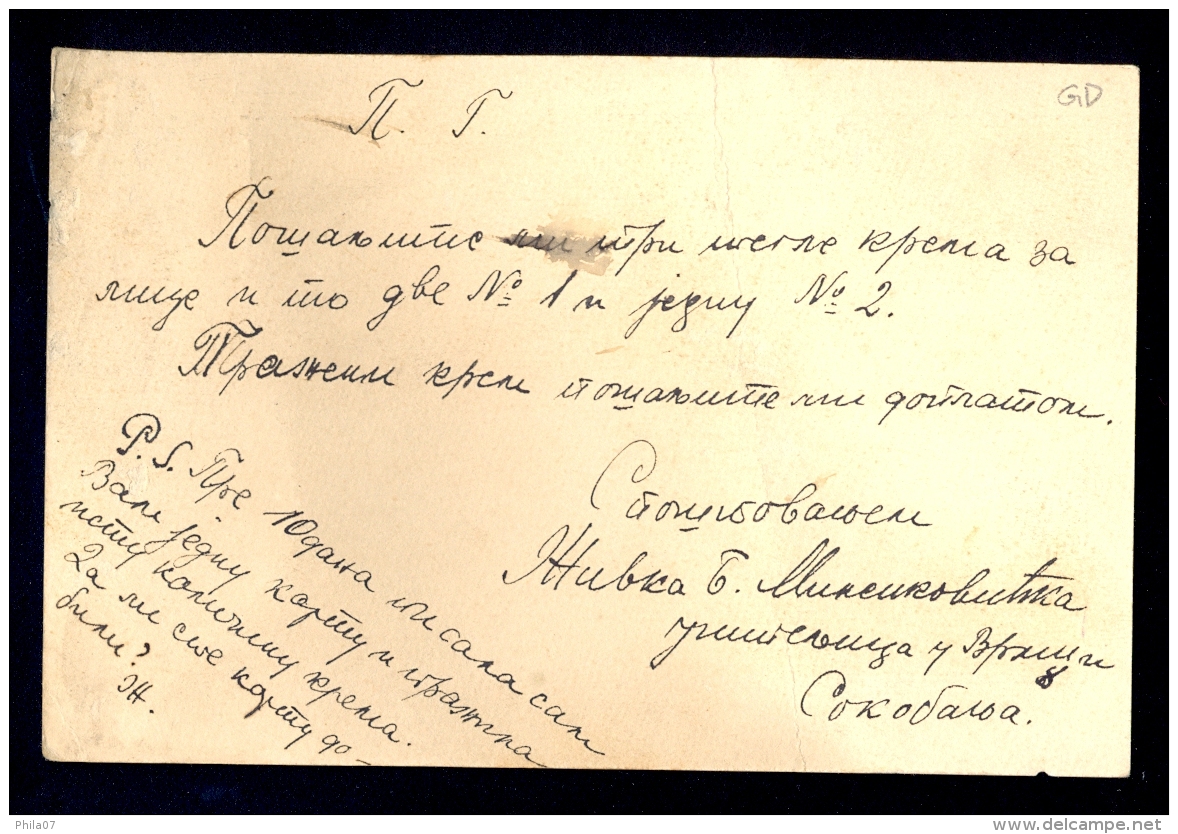 GD
П. Г.
Пошаљите ми три тегле крема за
лице и то две № 1 и једну № 2.
Тражени крем пошаљите ми доплатом.
С поштовањем
Живка Б.
учитељица у
Сокобања.
P.S. Пре 10 дана писала сам
Вам једну карту и тражила
исту количину крема.
Да ли сте карту до-
били?
Ж.
Phila07
www.delcampe.net